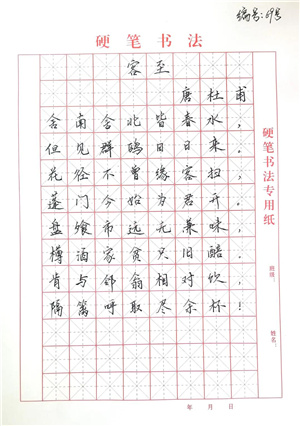 编号:69号
硬笔书法
客至
唐杜甫
舍南舍北皆春水,
但见群鸥日日来。
花径不曾缘客扫,
蓬门今始为君开。
盘飧市远无兼味,
樽酒家贫只旧醅。
肯与邻翁相对饮,
隔篱呼取尽余杯!
硬笔书法专用纸
班级:
姓名:
年 月 日